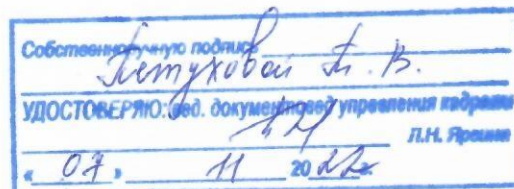 Собственноручную подпись
Петуховой Т. В.
УДОСТОВЕРЯЮ: вед. документовед управления кадрами
Л.Н.
« 07 » 11 2022г.